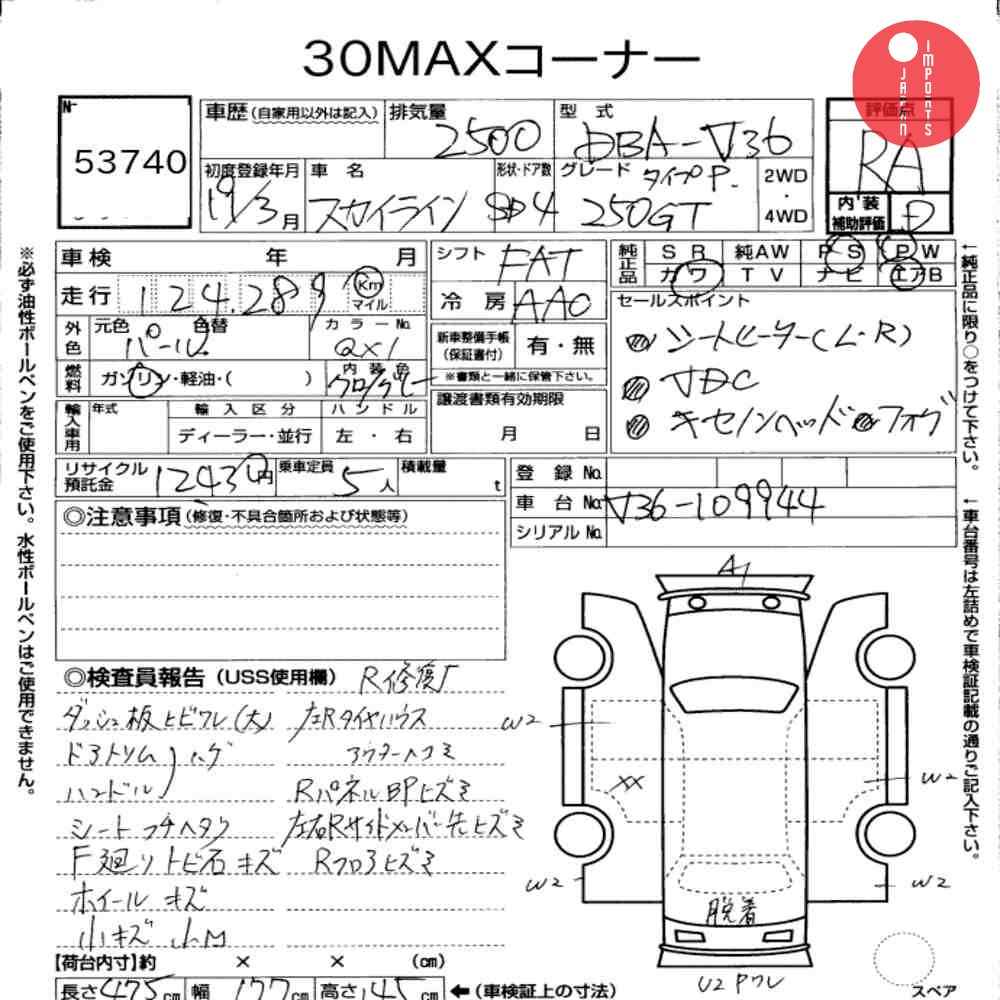 30MAXコーナー
JAPAN IMPORTS
N-
53740
車歴(自家用以外は記入)
排気量
2500
型 式
DBA-V36
評価点
RA
初度登録年月
19/3月
車 名
スカイライン
形状・ドア数
SD4
グレード
タイプP.
250GT
2WD
・
4WD
内 装
補助評価
D
車 検 年 月
シフト
FAT
純正品
S R 純AW P S P W
カ ワ T V ナ ビ エアB
走 行
124,289
Km
マイル
冷 房
AAC
セールスポイント
シートヒーター(L・R)
VDC
キセノンヘッド フォグ
外色
元色 色替
パール
カラーNo.
QX1
新車整備手帳
(保証書付)
有・無
※書類と一緒に保管下さい。
燃料
ガソリン・軽油・( )
内 装 色
クロ/グレー
譲渡書類有効期限
月 日
輸入車用
年式
輸 入 区 分
ディーラー・並行
ハ ン ド ル
左 ・ 右
リサイクル
預託金
12430円
乗車定員
5人
積載量
t
登 録 No.
車 台 No.
V36-109944
シリアル No.
◎注意事項(修復・不具合箇所および状態等)
◎検査員報告(USS使用欄)
R修復
ダッシュ板ヒビワレ(大)
左Rタイヤハウス
ドアトリム
ハゲ
アウターヘコミ
ハンドル
RパネルBPヒズミ
シートコゲヘタリ
左右Rサイドメンバー先ヒズミ
F廻りトビ石キズ
Rフロアヒズミ
ホイールキズ
小キズ小M
A1
W2
XX
W2
W2
W2
脱着
U2 Pワレ
スペア
【荷台内寸】約 × × (cm)
長さ475cm
幅177cm
高さ145cm
←(車検証上の寸法)
※必ず油性ボールペンをご使用下さい。水性ボールペンはご使用できません。
←純正品に限り○をつけて下さい。
←車台番号は左詰めで車検証記載の通りご記入下さい。